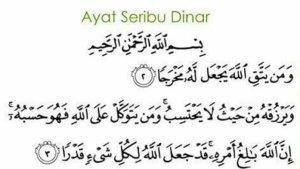 Ayat Seribu Dinar
بِسْمِ اللَّهِ الرَّحْمَٰنِ الرَّحِيمِ
وَمَن يَتَّقِ اللَّهَ يَجْعَل لَّهُ مَخْرَجًا ٢
وَيَرْزُقْهُ مِنْ حَيْثُ لَا يَحْتَسِبُ ۚ وَمَن يَتَوَكَّلْ عَلَى اللَّهِ فَهُوَ حَسْبُهُ ۚ
إِنَّ اللَّهَ بَالِغُ أَمْرِهِ ۚ قَدْ جَعَلَ اللَّهُ لِكُلِّ شَيْءٍ قَدْرًا ٣